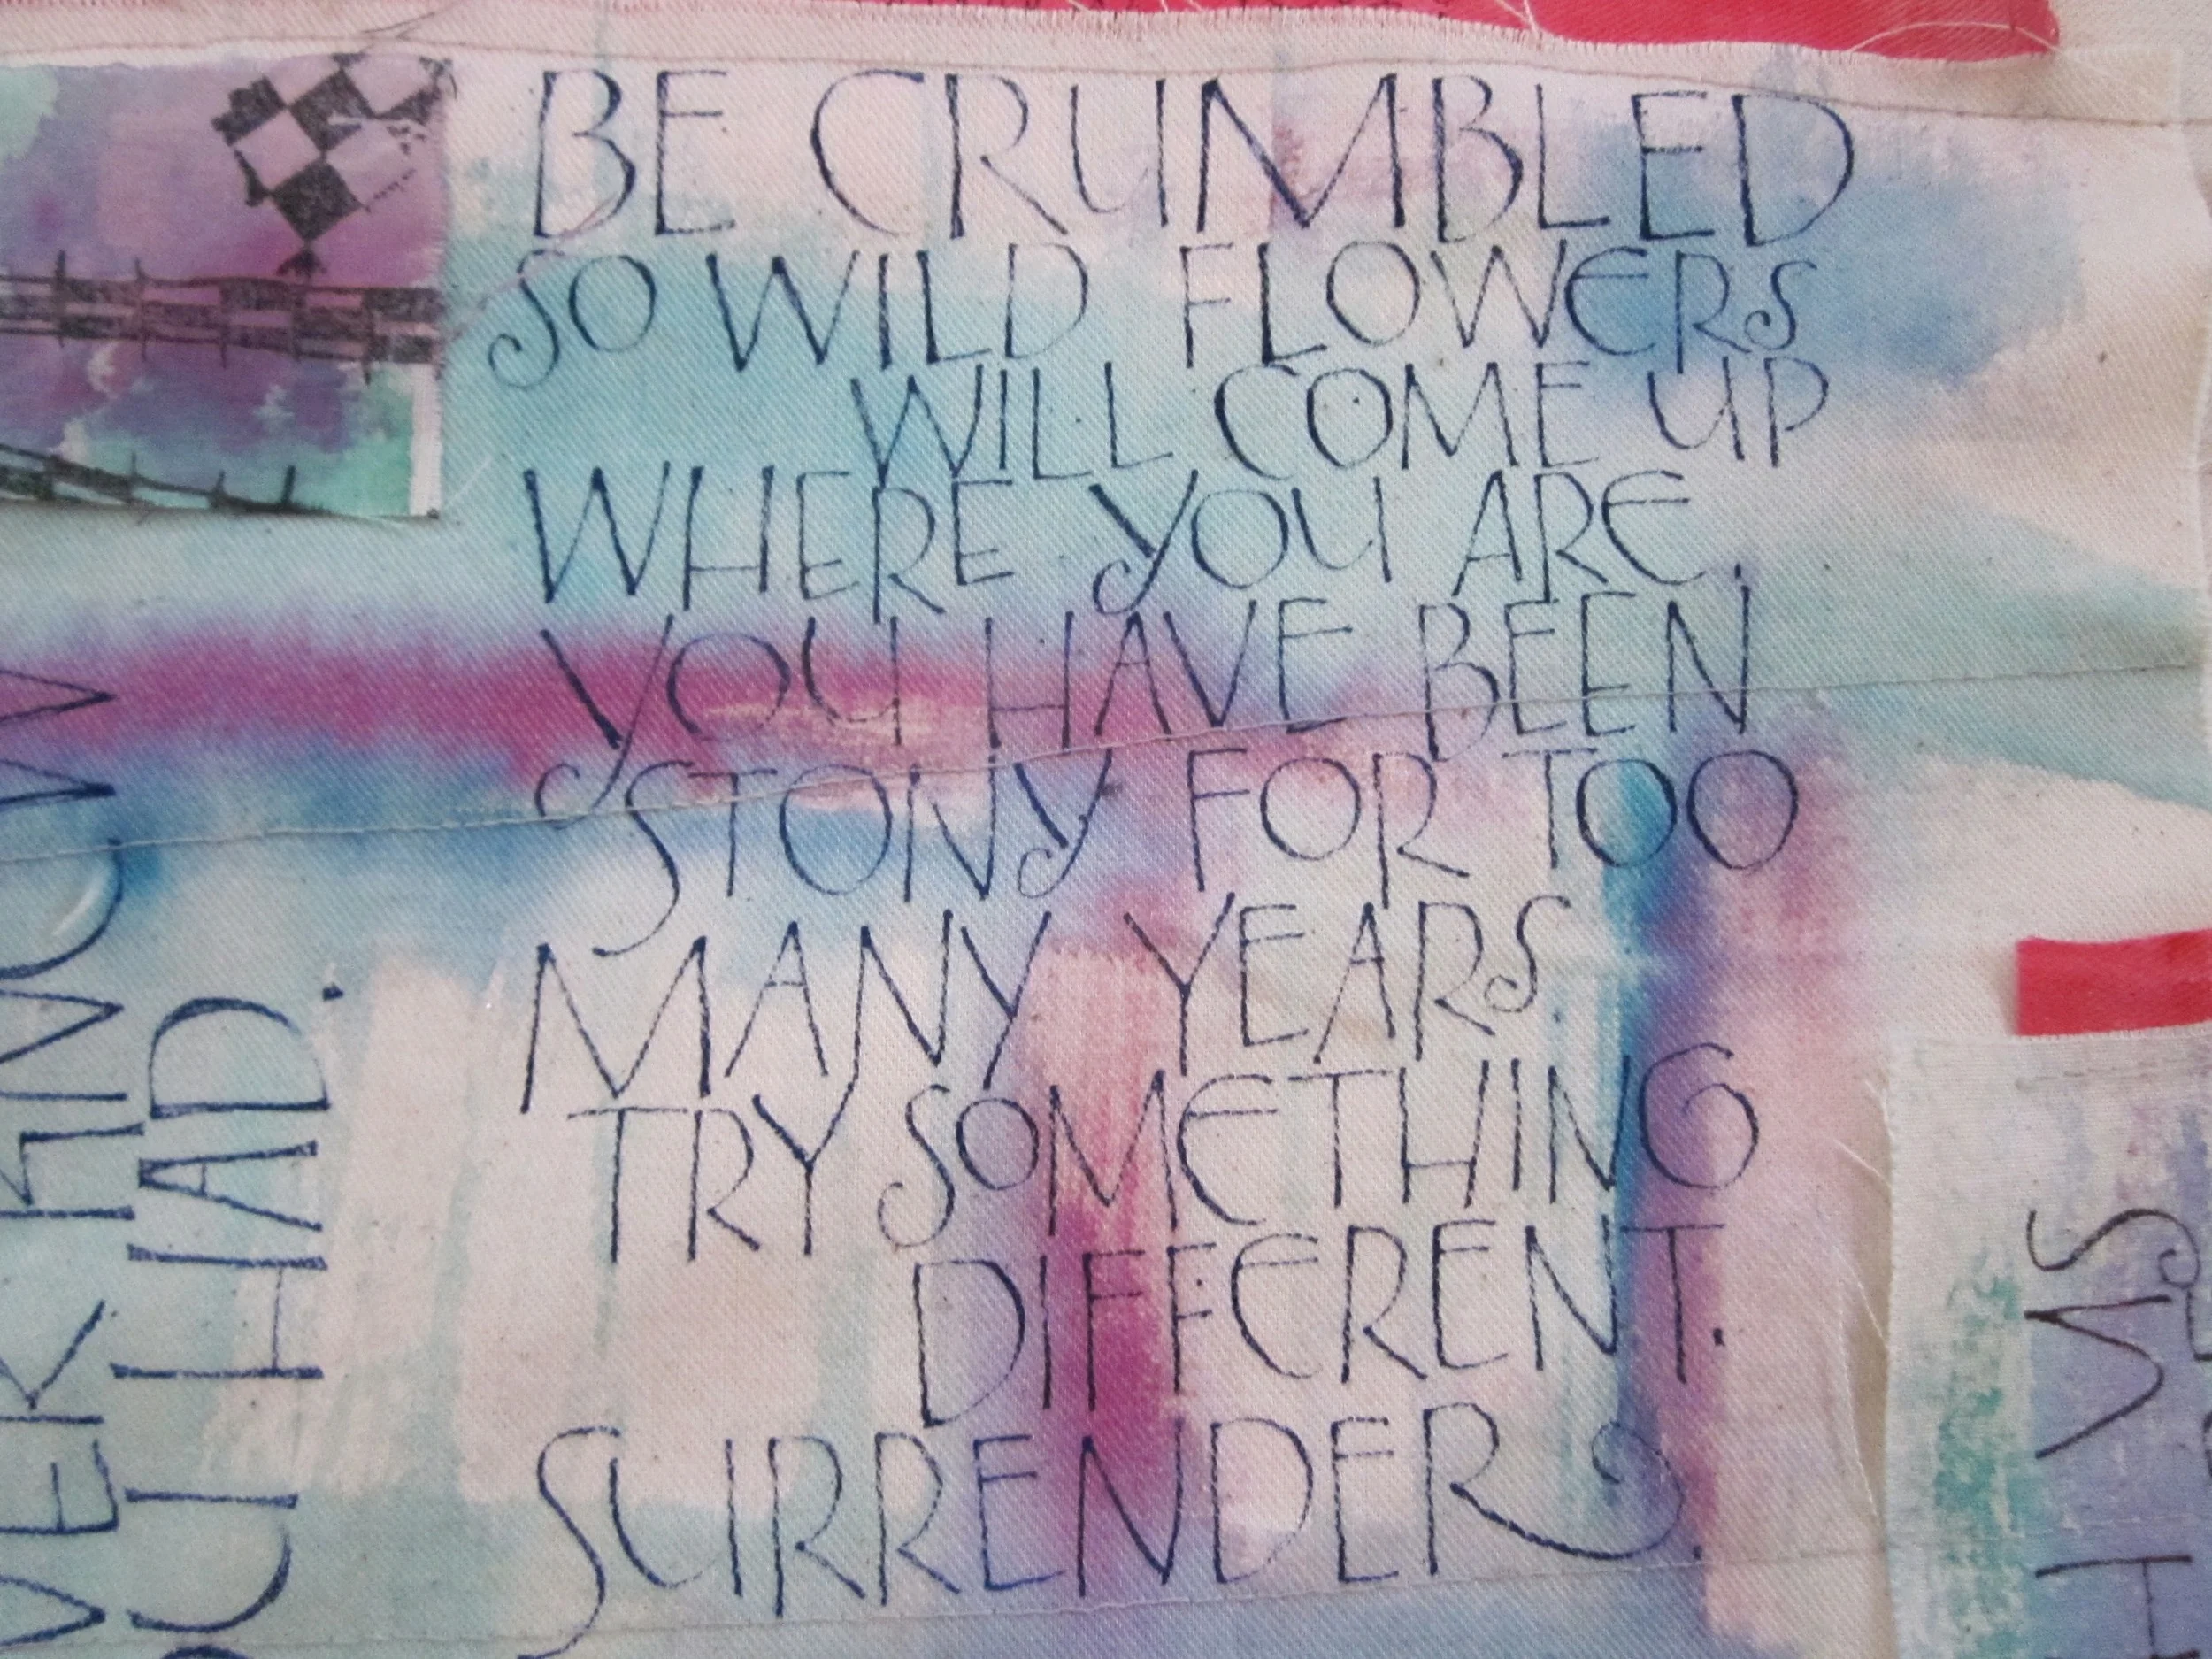 BE CRUMBLED
SO WILD FLOWERS
WILL COME UP
WHERE YOU ARE.
YOU HAVE BEEN
STONY FOR TOO
MANY YEARS
TRY SOMETHING
DIFFERENT.
SURRENDER.
HAD.